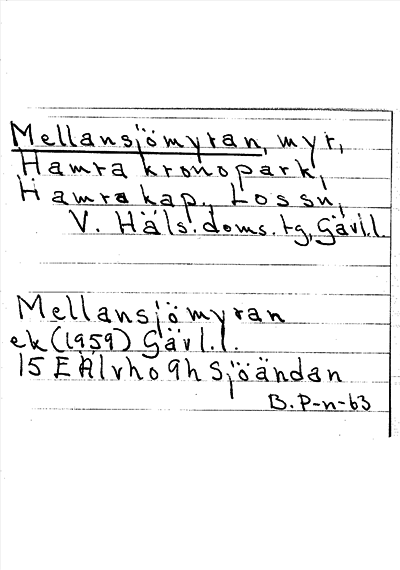 Mellansjömyran, myr,
Hamra kronopark,
Hamra kap., Lossn,
V. Häls. doms. tg, Gävl.l.
Mellansjömyran
ek (1959) Gävl.l.
15 E Älvho 9h Sjöändan
B. P-n-63